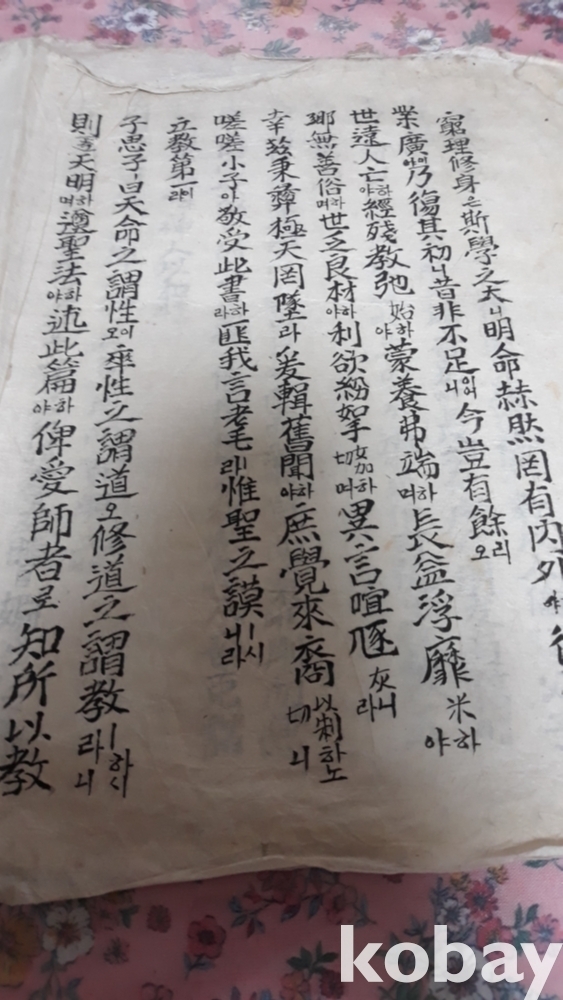 窮理修身은斯學之大니明命赫然罔有內外야
業廣에乃復其初니昔非不足이니今豈有餘리오
世遠人亡하야經殘教弛始하야蒙養弗端하며長益浮靡米하야
鄉無善俗하며世乏良材하야利欲紛拏女加切하며異言喧豗灰니라
幸玆秉彝極天罔墜라爰輯舊聞하야庶覺來裔以制切하노니
嗟嗟小子아敬受此書하라匪我言耄라惟聖之謨ㅣ시니라
立教第一이라
子思子ㅣ曰天命之謂性이오率性之謂道오修道之謂教ㅣ라하시니
則天明하며遵聖法하야述此篇하야俾爲師者로知所以教
kobay